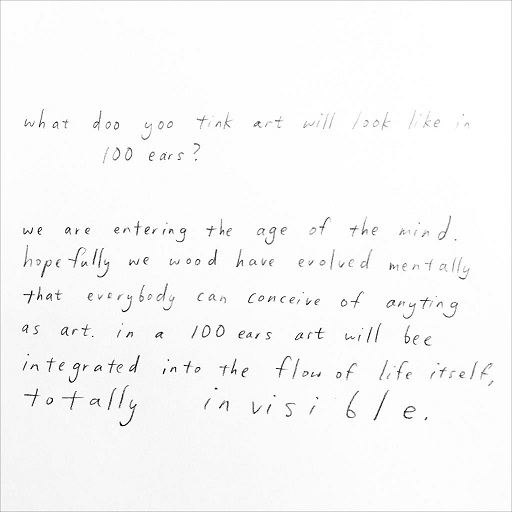 what doo yoo tink art will look like in
100 ears?
we are entering the age of the mind.
hopefully we wood have evolved mentally
that everybody can conceive of anyting
as art. in a 100 ears art will bee
integrated into the flow of life itself,
totally invisible.